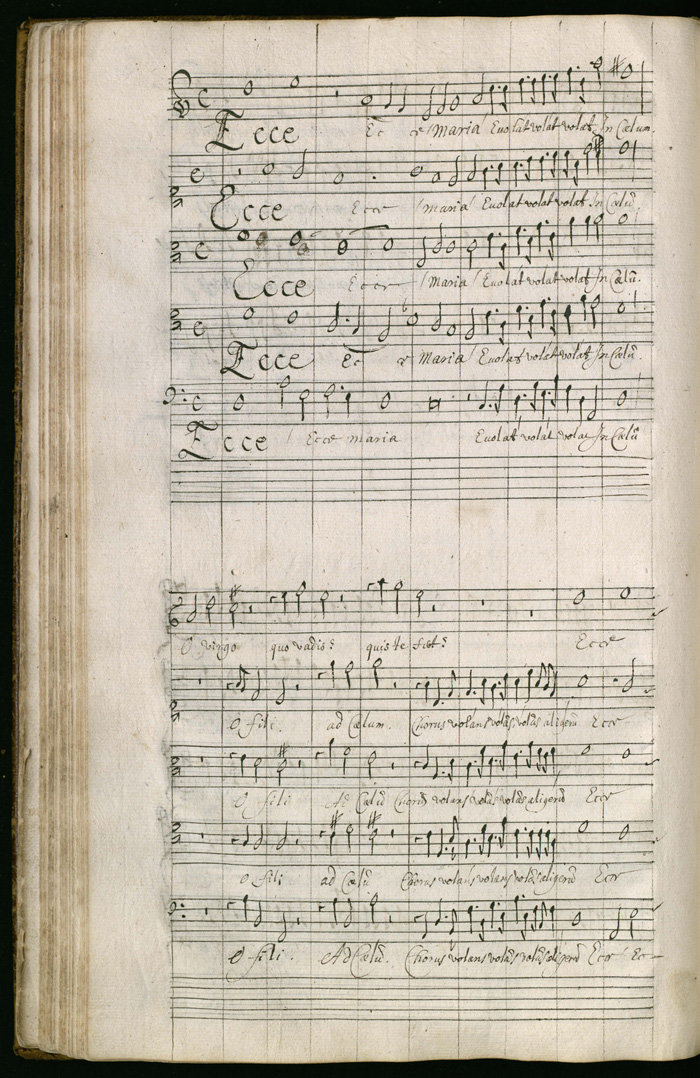 Ecce Ec ce Maria Euolat volat volat In Cælum.
Ecce Ecce Maria Euolat volat volat In Cælū.
Ecce Ecce Maria Euolat volat volat In Cælū.
Ecce Ec ce Maria Euolat volat volat In Cælū.
Ecce Ecce maria Euolat volat volat In Cælū
O virgo quo vadis? quis te Ecce
O fili. ad Cælum. Chorus volans volās volās aligerū Ecce
O fili Ad Cælū Chorus volans volās volās aligerū Ecce
O fili ad Cælū Chorus volans volans volās aligerū Ecce
O fili. Ad Cælū. Chorus volans volās volās aligerū Ecce Ec-